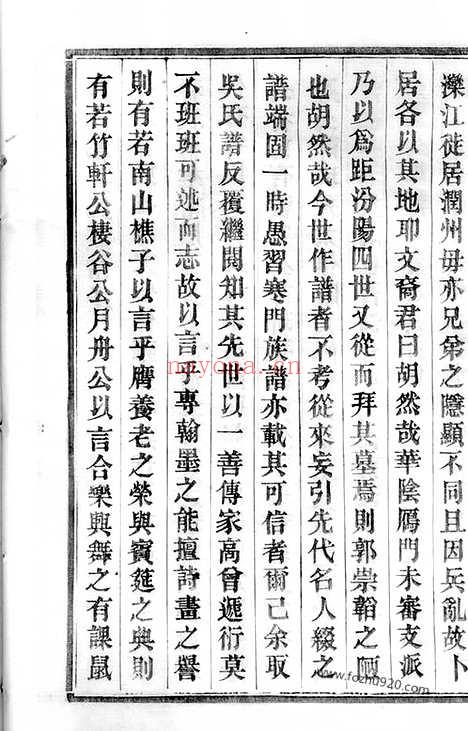 濼江徙居潤州毋亦兄弟之隱顯不同且兵亂故卜
居各以其地耶文裔君曰胡然哉華陰鴈門未審支派
乃以爲距汾陽四世又從而拜其墓焉則郭崇韜之陋
也胡然哉今世作譜者不考從來妄引先代名人綴之
譜端固一時愚習寒門族譜亦載其可信者爾已余取
吳氏譜反覆繼閱知其先世以一善傳家高曾遞衍莫
不班班可述而志故以言乎專翰墨之能擅詩畫之譽
則有若南山樵子以言乎膺養老之榮與賓筵之典則
有若竹軒公棲谷公月舟公以言合樂與舞之有課鼠
nayona.cn
www.fozhu920.com